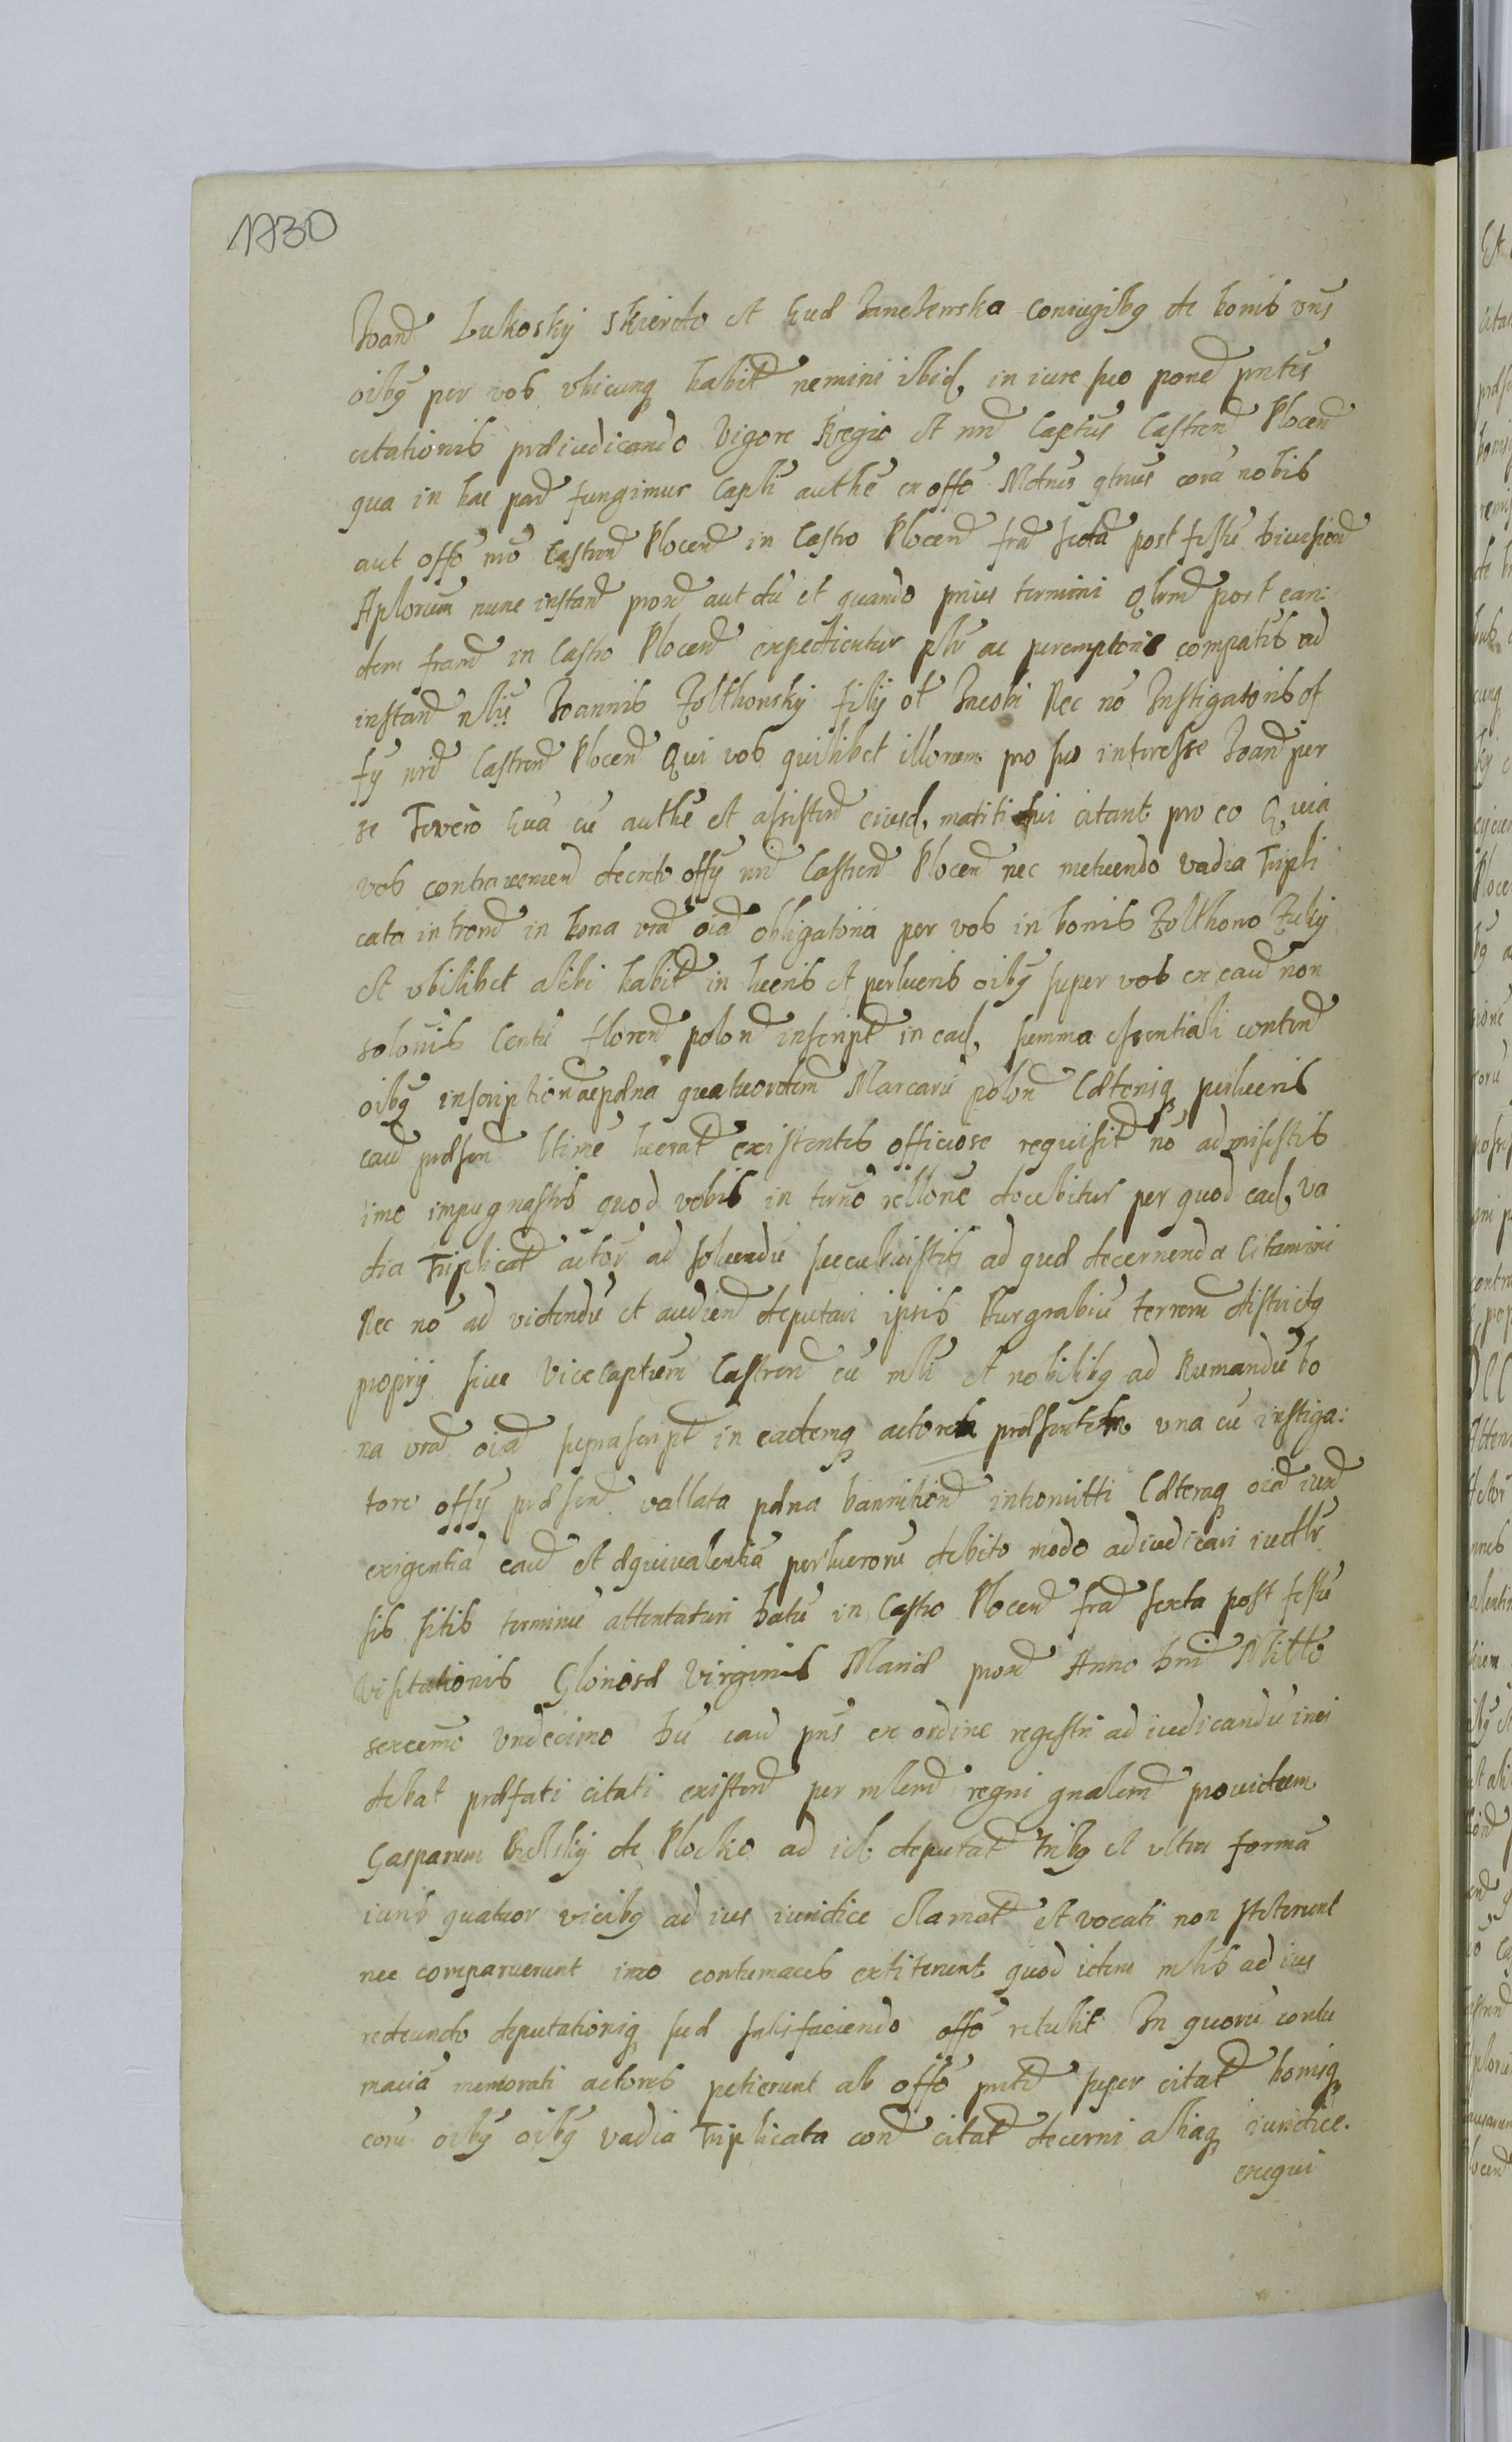 1730
Joañ Lukosky Skierdo et Evæ Janczewska coniugibg de bonis vris
oibg per vos vbicunq habit nemini ibid, in iure suo poneđ pntis
citationis præiudicando Vigore Regio et nrđ Captus Castrenđ Plocenđ
qua in hac parđ fungimur Captli authe ex offo Mdnus qtnus corā nobis
aut offo nro Castrenđ Plocenđ in Castro Plocenđ frđ sexta post festū diuisionđ
Aplorum nunc instanđ proxđ aut dū et quando prius termini Qlrnđ post ean:
dem franđ in Castro Plocenđ expedientur pslr ac peremptorie compatis ad
instanđ nblis Joannis Zolthowsky filij ol Jacobi Nec nō Instigatoris of
fy nrđ Castrenđ Plocenđ Qui vos quilibet illorum pro suo interesse Joanđ per
se Tuvero Eua cū authe et assistenđ eiusd, mariti tui citant pro eo Quia
vos contraueniend decreto offy nrđ Castrenđ Plocenđ nec metuendo vadia Tripli
cata intromđ in bona vrđ oiđ obligatoria per vos in bonis Zolthowo Zuky
et vbilibet alibi habit in lucris et perlucris oibg super vos ex cauđ non
solonis Centū florenđ polonđ inscript in ead, summa essentiali contenđ
oibg inscriptionđ pæna quatuordem Marcarū polonđ Cæterisq perlucris
cauđ præsenđ ltime lucrat existentes officiose requisit nō admisistis
imo impugnastis quod vobis in termo rellone docebitur per quod ead, va
dia Triplicat actori ad soluendū succubuistis ad quæ decernenda Citamini
Nec nō ad videndū et audienđ deputari ipsis Burgrabiū terrarum districtg
proprij siue Vicecaptum Castrenđ cū mli et nobilibg ad Rumandū bo
na vrđ oiđ suprascript in eademq actorem præsentem vna cū instiga:
tore offy præsenđ vallata pæna bannitionđ intromitti Cæteraq oiđ iuxđ
exigentiā cauđ et æquiualentiā perlucrorū debito modo adiudicari iudlr
sis sitis terminū attentaturi Datū in Castro Plocenđ frđ sexta post festū
Visitationis Gloriosæ Virginis Mariæ proxđ Anno Dnđ Millo
sexcemo Vndecimo Dū cauđ pns ex ordine regestri ad iudicandū inci
debat præfati citati existenđ per mlemđ regni gnalemđ prouidum
Gasparum Bielsky de Plocko ad id, deputat tribg et vltra formā
iuris quatuor vicibg ad ius iuridice clamat et vocati non steterunt
nec comparuerunt imo contumaces extiterunt quod idem mlis ad ius
redeundo deputationiq suæ satisfaciendo offo retulit In quorū contu
maciā memorati actores petierunt ab offo pntđ super citat bonisq
eorū oibg oibg vadia Triplicata conđ citat decerni aliaq iuridice.
exequi